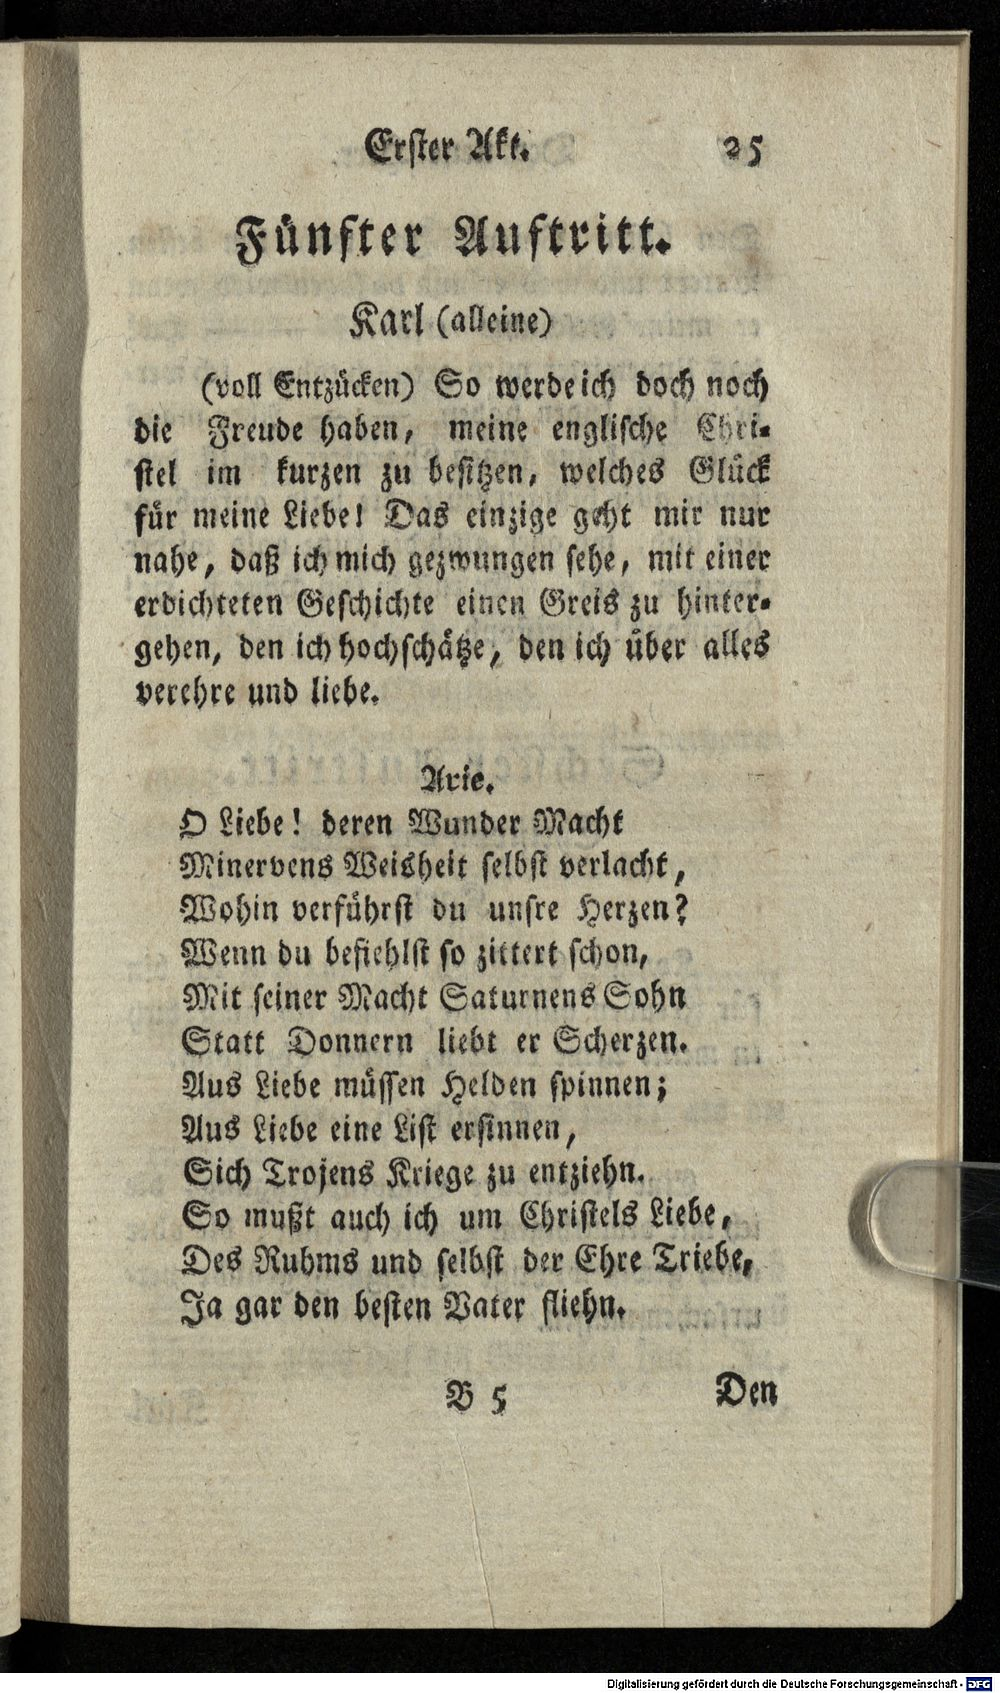 Erster Akt. 25
Fünfter Auftritt.
Karl (alleine)
(voll Entzücken) So werde ich doch noch
die Freude haben, meine englische Chri-
stel im kurzen zu besitzen, welches Glück
für meine Liebe! Das einzige geht mir nur
nahe, daß ich mich gezwungen sehe, mit einer
erdichteten Geschichte einen Greis zu hinter-
gehen, den ich hochschätze, den ich über alles
verehre und liebe.
Arie.
O Liebe! deren Wunder Macht
Minervens Weisheit selbst verlacht,
Wohin verführst du unsre Herzen?
Wenn du befiehlst so zittert schon,
Mit seiner Macht Saturnens Sohn
Statt Donnern liebt er Scherzen.
Aus Liebe müssen Helden spinnen;
Aus Liebe eine List ersinnen,
Sich Trojens Kriege zu entziehn.
So mußt auch ich um Christels Liebe,
Des Ruhms und selbst der Ehre Triebe,
Ja gar den besten Vater fliehn.
B 5 Den
Digitalisierung gefördert durch die Deutsche Forschungsgemeinschaft - DFG